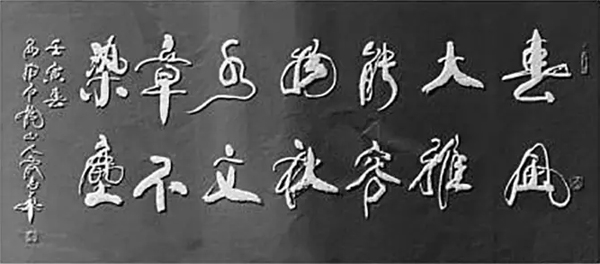 春風
大雅
能容
物秋
水文
章不
染塵
壬寅春